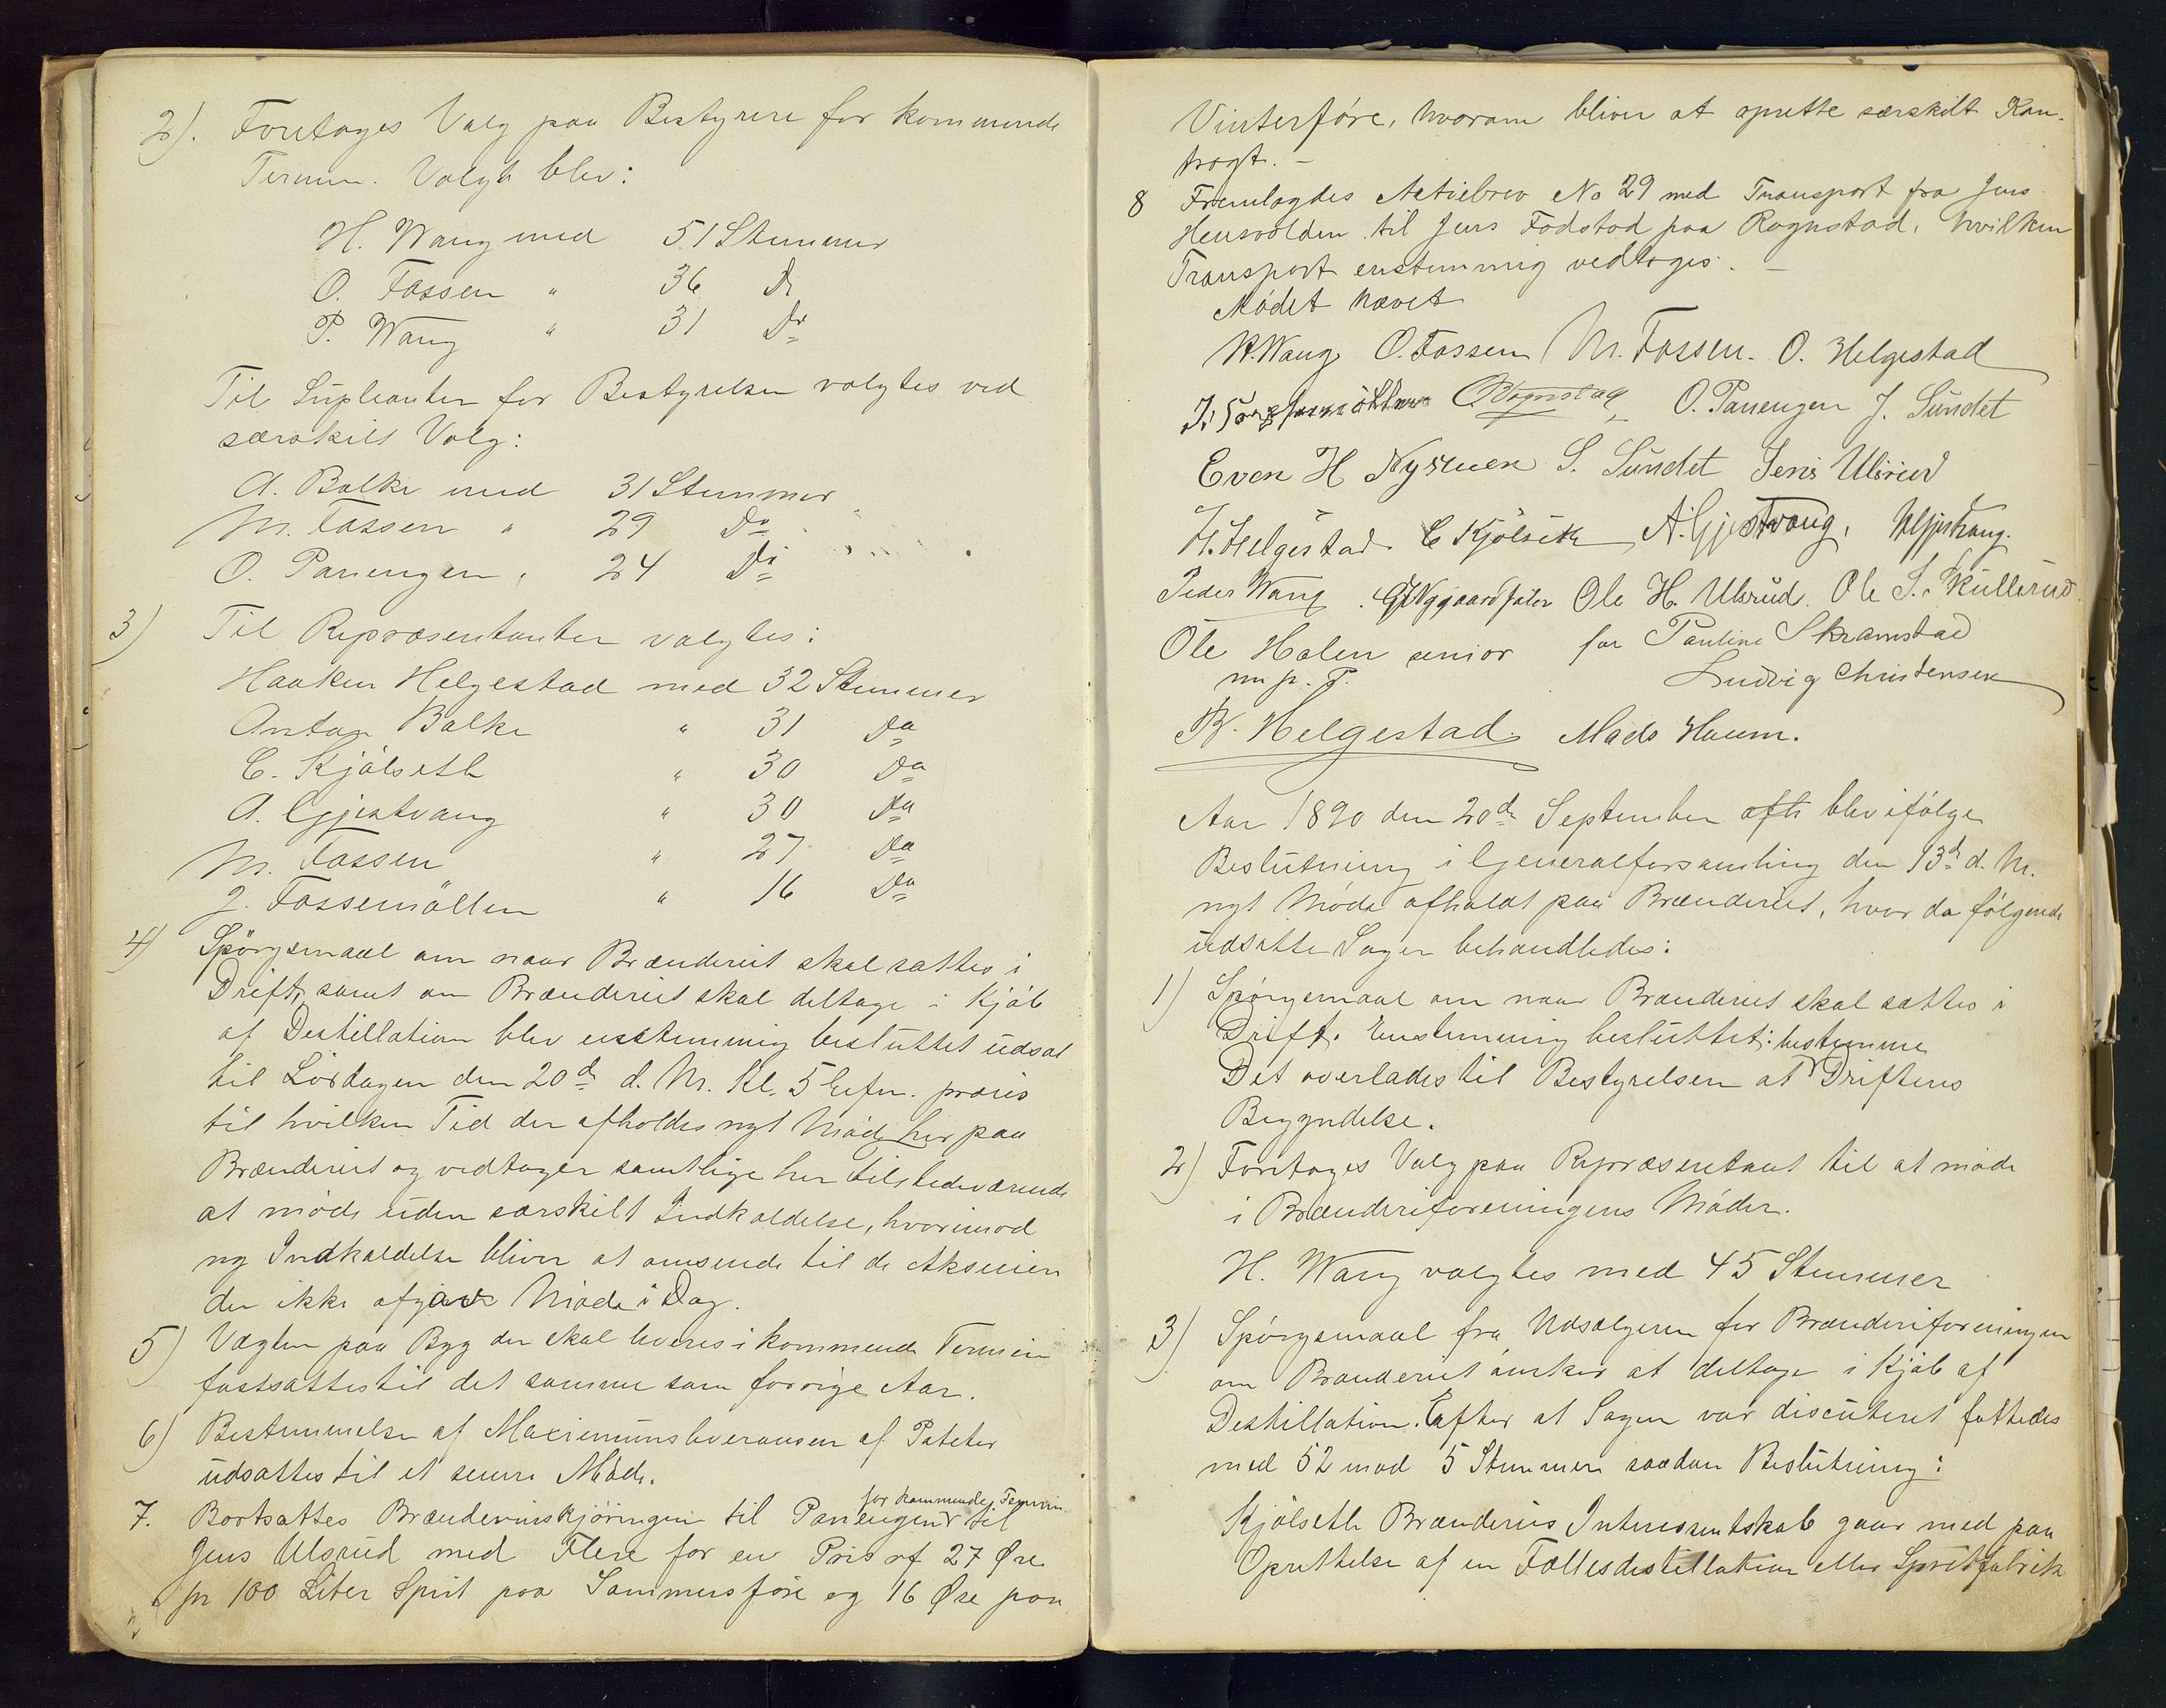 2). Foretoges Valg paa Bestyrere for kommende
Termin. Valgt blev:
H. Wang med 51 Stemmer
O. Fossen " 36 Do
P. Wang " 31 Do
Til Supleanter for Bestyrelsen valgtes ved
særskilt Valg:
A. Balke med 31 Stemmer
M. Fossen " 29 Do
O. Panengen " 24 Do
3) Til Repræsentanter valgtes:
Haaken Helgestad med 32 Stemmer
Anton Balke " 31 Do
C. Kjölseth " 30 Do
A. Gjestvang " 30 Do
M. Fossen " 27 Do
J. Fossemöllen " 16 Do
4) Spörgsmaal om naar Brænderiet skal sættes i
Drift, samt om Brænderiet skal deltage i Kjöb
af Destillation blev enstemmig besluttet udsat
til Lördagen den 20de d. M. Kl. 5 Eefm. præcis
til hvilken Tid der afholdes nyt Möde her paa
Brænderiet og vedtager samtlige her tilstedeværende
at möde uden særskilt Indkaldelse, hvorimod
ny Indkaldelse bliver at omsende til de
der ikke afgav Möde i Dag.
5) Vægten paa Byg der skal leveres i kommende Termin
fastsættes til det samme som forrige Aar.
6) Bestemmelse af Maximumsleveransen af Poteter
udsattes til et senere Möde.
7. Bortsattes Brændevinskjöringen til Panengen for kommende Termin til
Jens Ulsrud med Flere for en Pris af 27 Øre
pr 100 Liter Spirit paa Sommersföre og 16 Øre paa
Vinterföre, hvorom bliver at oprette særskilt Kon-
tragt. —
8 Fremlagdes Aktiebrev No 29 med Transport fra Jens
Hensvolden til Jens Fodstad paa Rognstad, hvilken
Transport enstemmig vedtoges. —
Mödet hævet
H. Wang O. Fossen M. Fossen. O. Helgestad
O. Rognstad O. Panengen J. Sundet
Even H Nysveen S. Sundet Jens Ulsrud
H. Helgestad. C Kjölseth A. Gjestvang, Gjestvang.
Peder Wang. Ole H. Ulsrud. Ole S. Kullerud
Ole Holen senior for Pauline Skramstad
m p. P. Ludvig Christensen
H. Helgestad. Mads Houm.
Aar 1890 den 20de September blev ifölge
Beslutning i Generalforsamling den 13de d. M.
nyt Möde afholdt paa Brænderiet, hvor da fölgende
udsatte Sager behandledes:
1) Spörgsmaal om naar Brænderiet skal sættes i
Drift. Enstemmig besluttet:
Det overlades til Bestyrelsen at bestemme Driftens
Begyndelse.
2) Foretoges Valg paa Repræsentant til at möde
i Brænderiforeningens Möder.
H. Wang valgtes med 45 Stemmer
3) Spörgsmaal fra Udsælgeren for Brænderiforeningen
om Brænderiet önsker at deltage i Kjöb af
Destillation. Efter at Sagen var discuteret fattedes
med 52 mod 5 Stemmer saadan Beslutning:
Kjölseth Brænderies Interessentskab gaar med paa
Oprettelse af en Fællesdestillation eller Spritfabrik